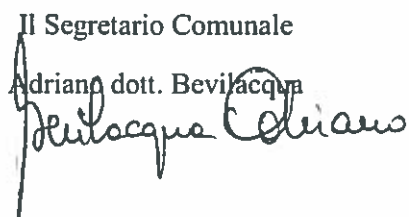 Il Segretario Comunale
Adriano dott. Bevilacqua
Bevilacqua Adriano